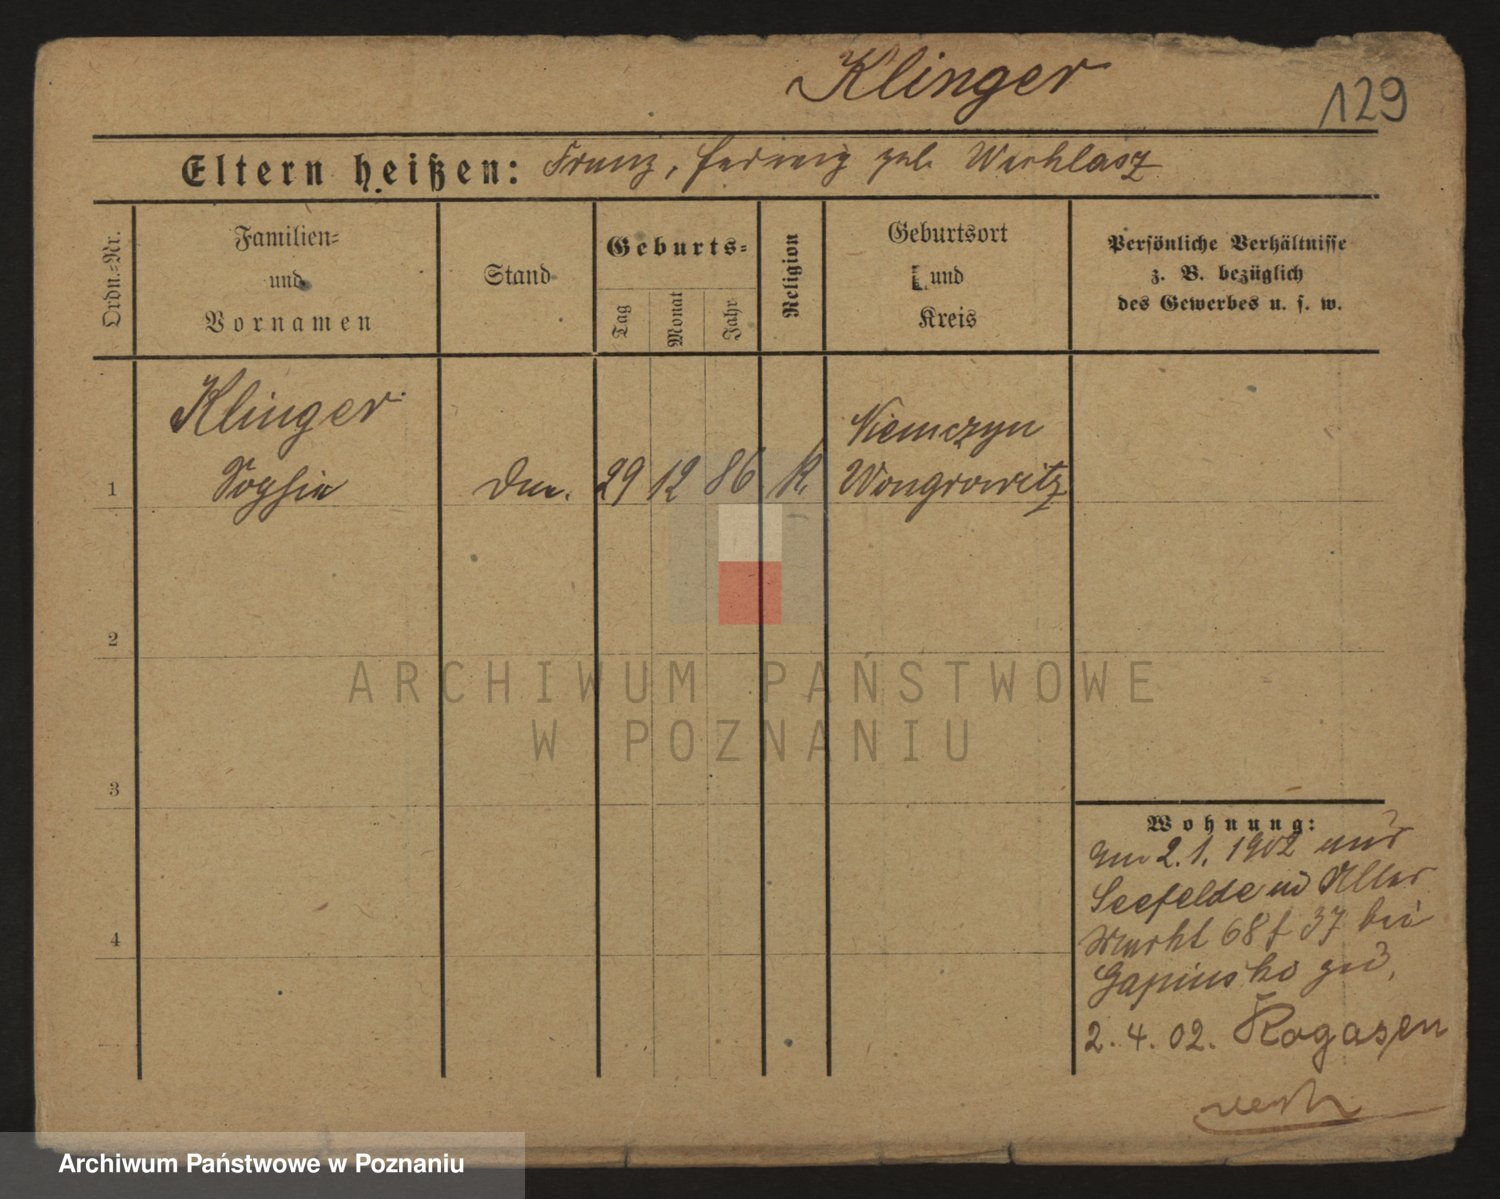 Klinger
129
Eltern heißen: Franz, Hedwig geb. Wechlasz
Ordn.=Nr.
Familien=
und
Vornamen
Stand
Geburts=
Tag
Monat
Jahr
Religion
Geburtsort
und
Kreis
Persönliche Verhältnisse
z. B. bezüglich
des Gewerbes u. s. w.
Klinger
Sophie
Niemczyn
1
29 12 86 K. Wongrowitz
2
3
4
Wohnung:
Am 2.1.1902 aus
Seefelde in Alter
Markt 68 f 37 bei
Gapinski zu.
2.4.02. Rogasen
verz.
ARCHIWUM PAŃSTWOWE
W POZNANIU
Archiwum Państwowe w Poznaniu